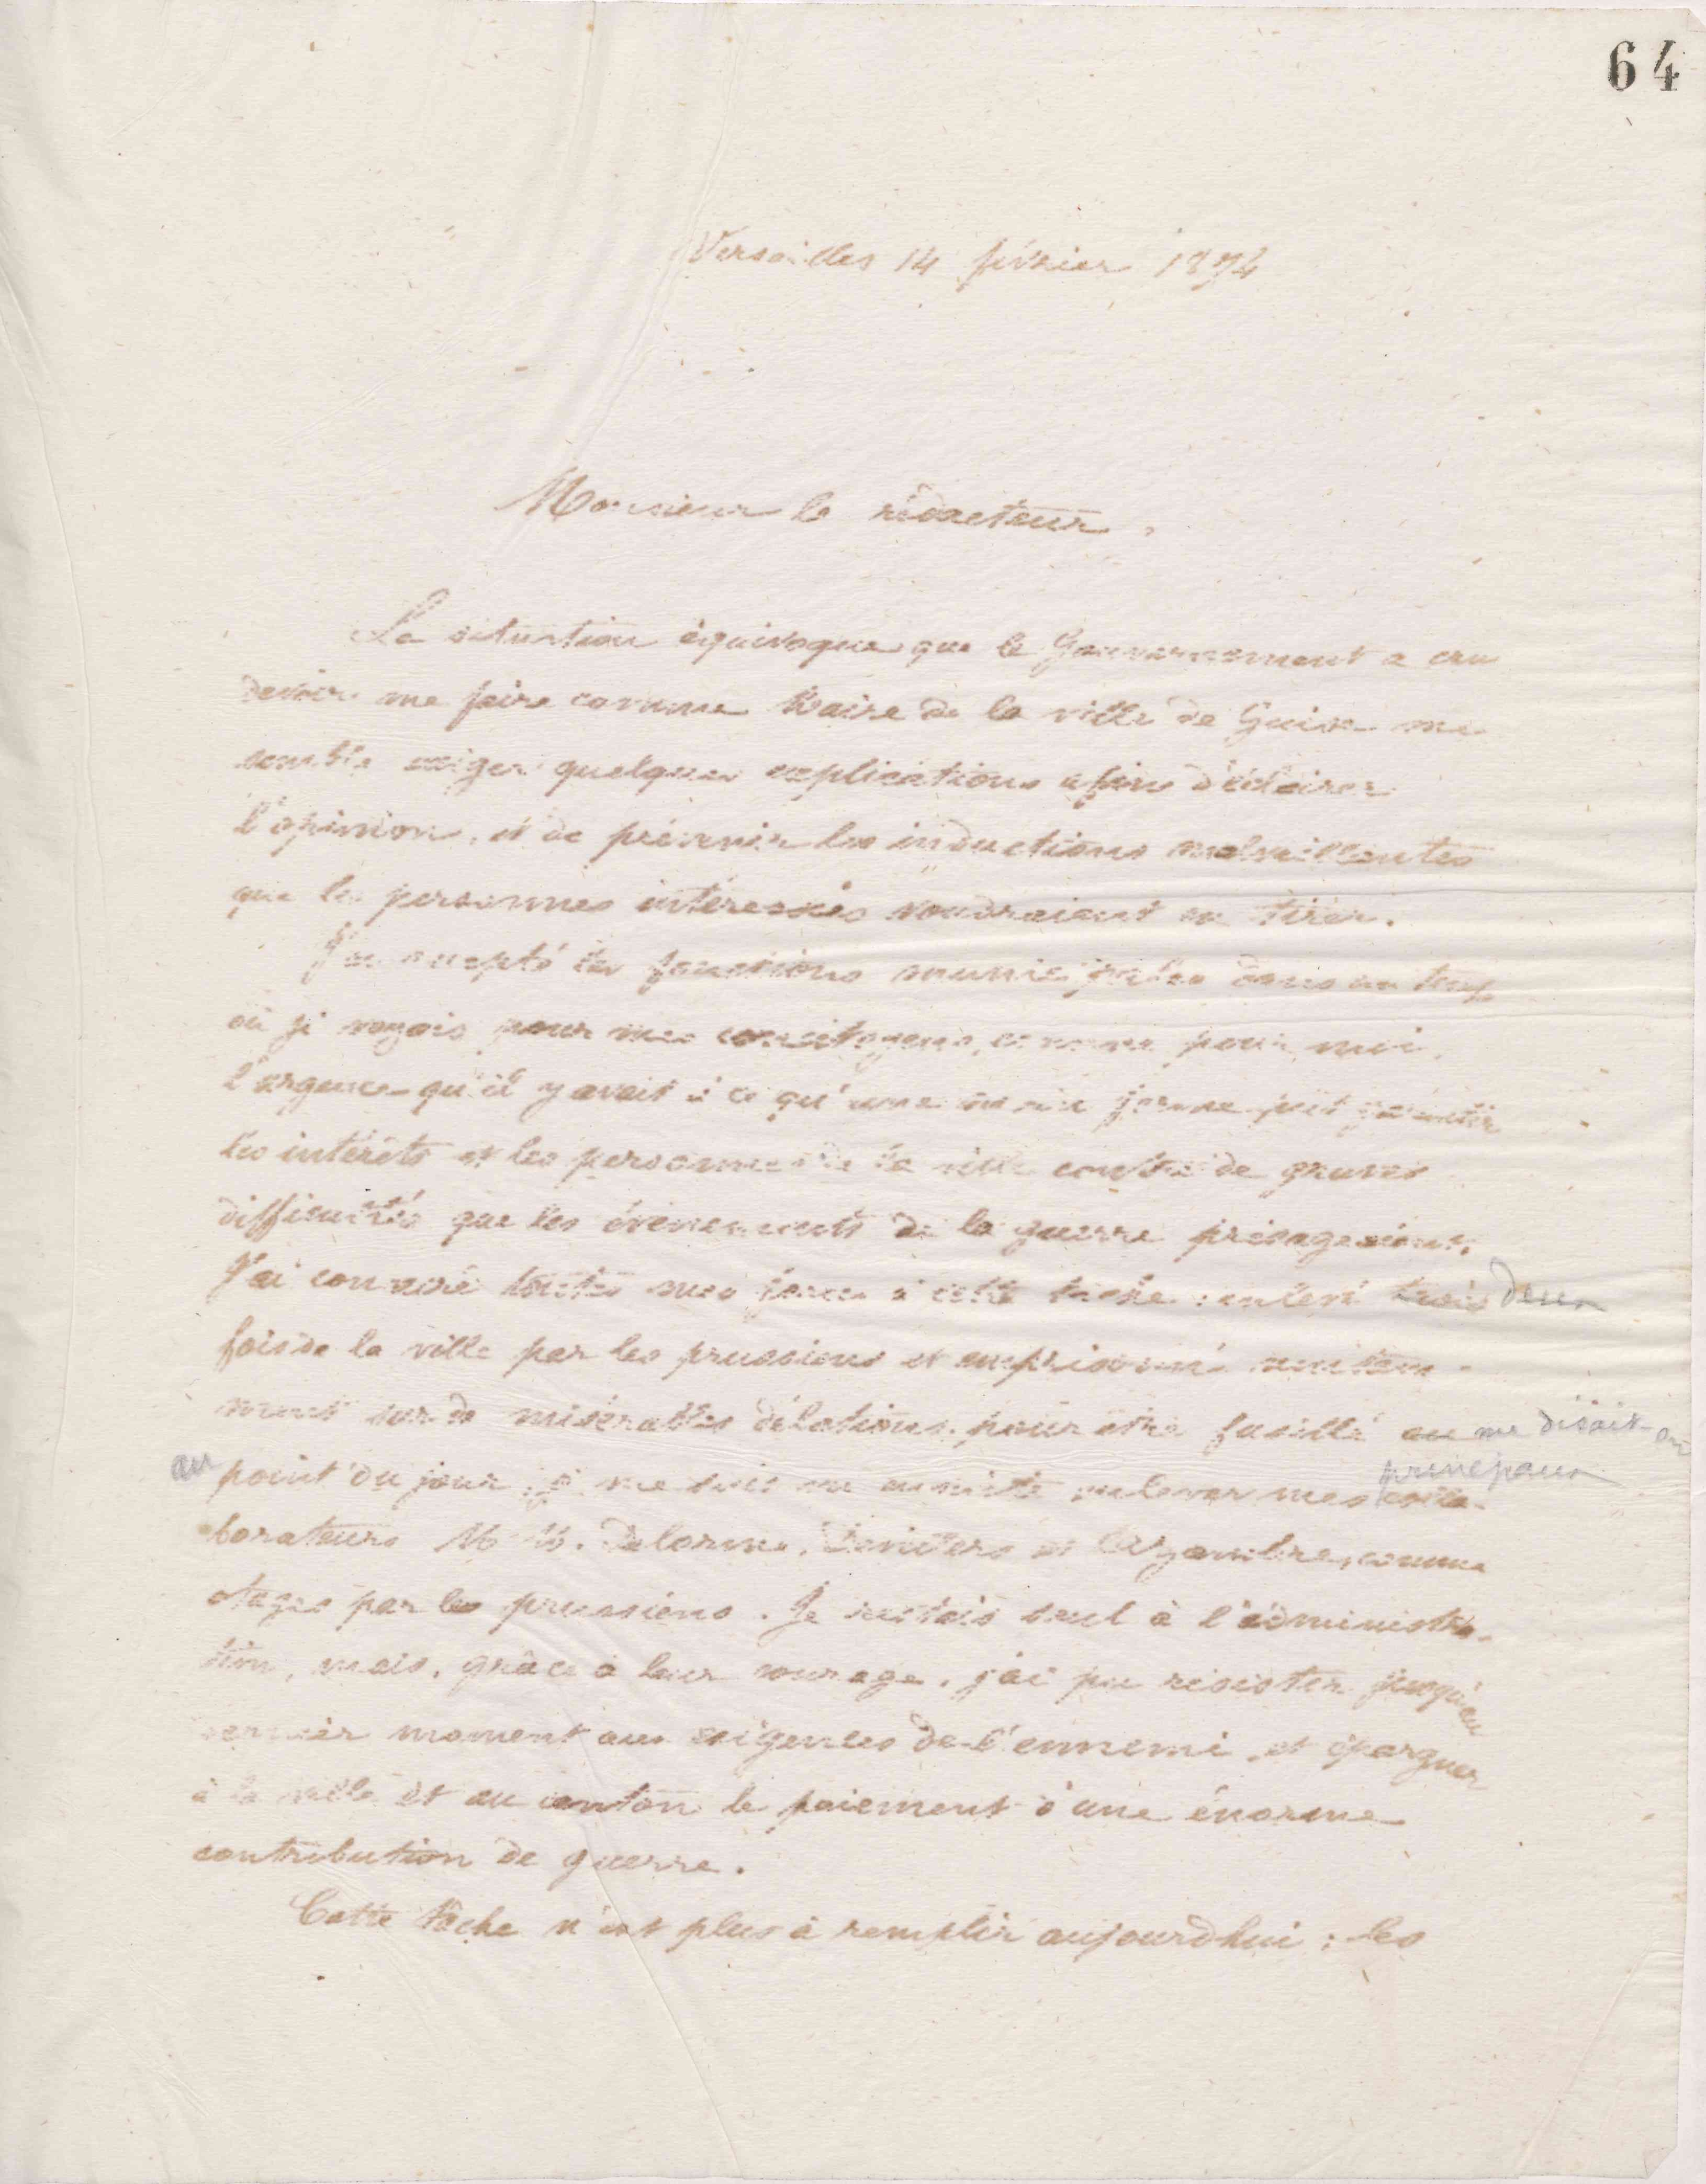 64
Versailles 14 février 1874
Monsieur le rédacteur,
La situation équivoque que le Gouvernement a cru
devoir me faire comme Maire de la ville de Guise me
semble exiger quelques explications afin d'éclairer
l'opinion, et de prévenir les inductions malveillantes
que les personnes intéressées voudraient en tirer.
J'ai accepté les fonctions municipales dans un temps
où je voyais pour mes concitoyens, comme pour moi,
l'urgence qu'il y avait à ce qu'une main ferme pût garantir
les intérêts et les personnes de la ville contre de graves
difficultés que les évènements de la guerre présageaient.
J'ai consacré toutes mes forces à cette tâche : enlevé trois deux
fois de la ville par les prussiens et emprisonné
sur de misérables délations, pour être fusillé au me disait-on
au point du jour, je me suis vu ensuite enlever mes principaux colla-
borateurs MM. Delorme, et Alizambre, comme
otages par les prussiens. Je restais seul à l'administra-
tion, mais, grâce à leur courage, j'ai pu résister jusqu'au
dernier moment aux exigences de l'ennemi et épargner
à la ville et au canton le paiement d'une énorme
contribution de guerre.
Cette tâche n'est plus à remplir aujourd'hui : les